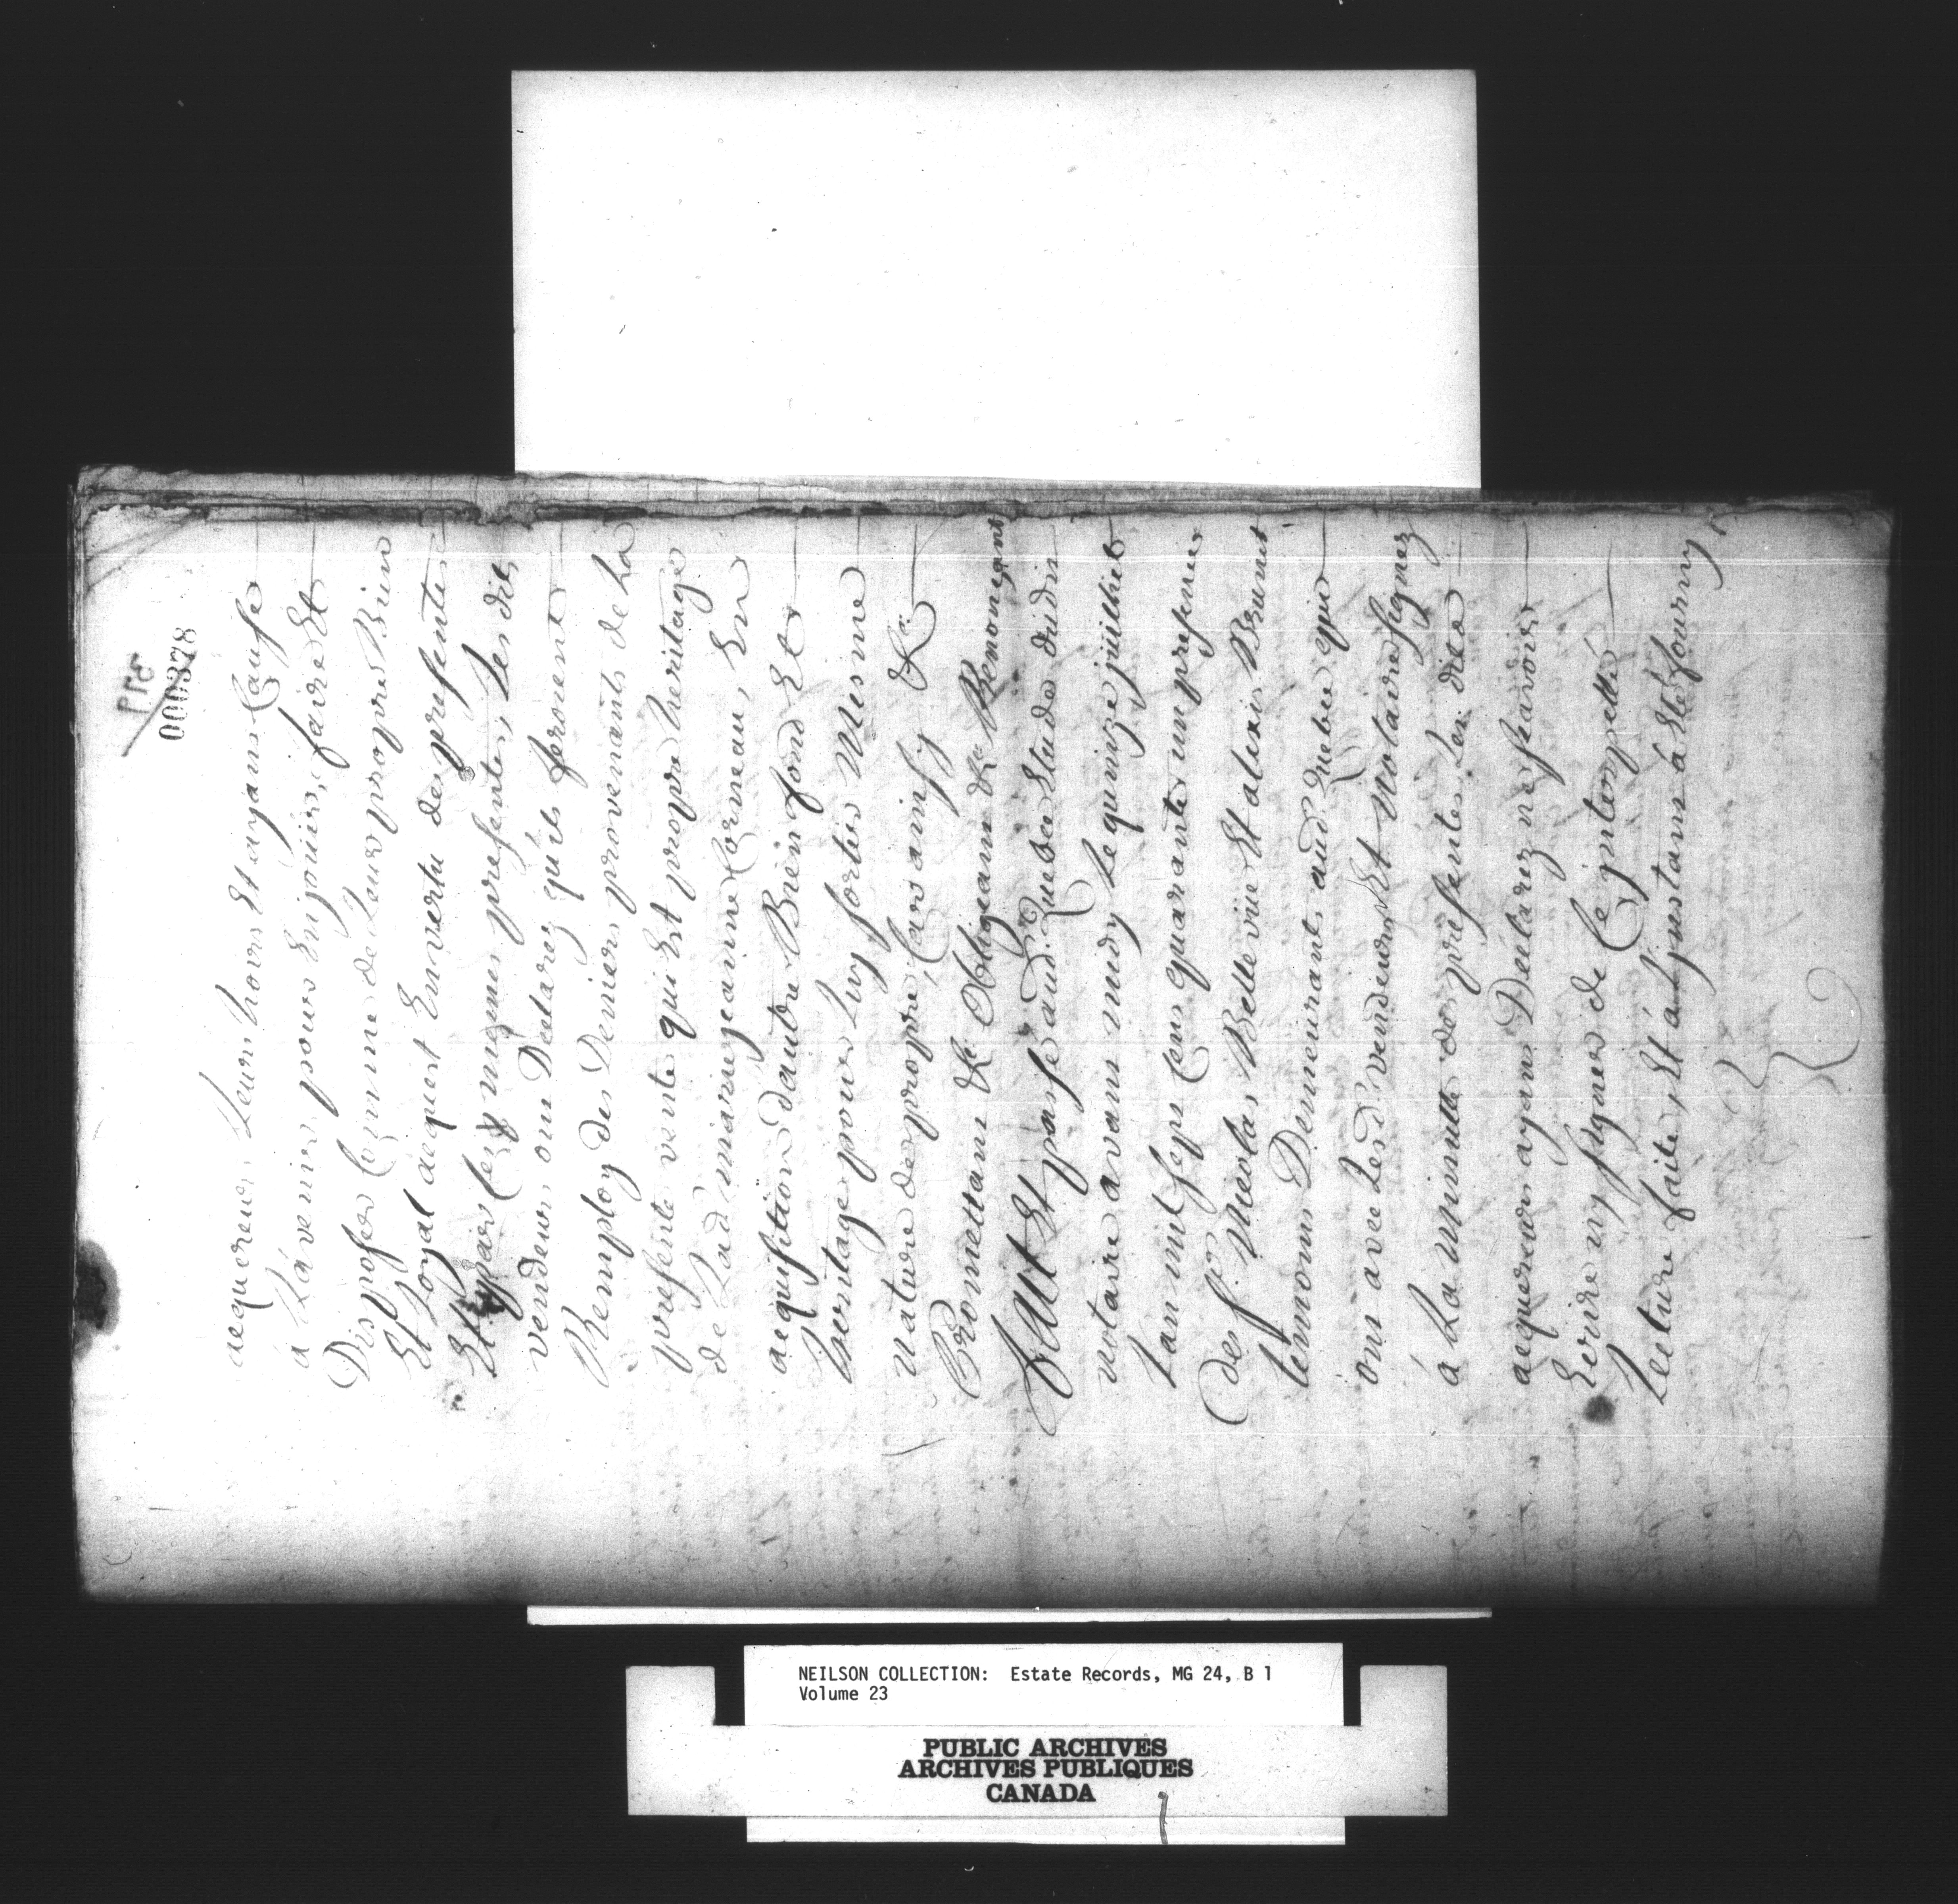 514
000378
acquereurs Leurs hoirs Et ayans Cause
á Lávenir pour Enjouir, faire Et
Disposer Comme de Leur propre Bien
Et Loyal acquest En vertu des presentes
Et par Ces mesmes presentes, Lesdits
vendeurs ont Declarez qu'ils feronent
Remploy des Deniers provenants de La
presente vente qui Est propre heritage
de Lad. marie jeanne Corneau, En
acquisition dautre Bien fond Et
heritage pour Luy sortir Mesme
nature de propre, Car ainsy &c.
Promettans &c. Obligeans &c. Renonçant
FAIT Et passé aud. Quebec Etude dudit
notaire avant midy Le quinze juilliet
Lan mil sept Cent quarante un presence
des Srs. Nicolas Bellevüe Et alexis Brunet
temoins Demeurants aud. Quebec qui
ont avec Lesd. vendeurs Et Notaire signez
á La minutte des presentes Les dits
acquereurs ayant Declarez ne sçavoir
Ecrire ny signer de Ce jnterpellé
Lecture faite, Et á Ljnstant á Eté fourny
NEILSON COLLECTION: Estate Records, MG 24, B 1
Volume 23
PUBLIC ARCHIVES
ARCHIVES PUBLIQUES
CANADA